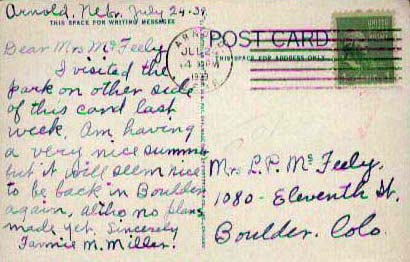 Arnold, Nebr. July 24-39.
THIS SPACE FOR WRITING MESSAGES
Dear Mrs McFeely
I visited the
park on other side
of this card last
week. Am having
a very nice summer
but it will seem nice
to be back in Boulder
again, altho no plans
made yet. Sincerely
Fannie M. Miller.
POST CARD
THIS SPACE FOR ADDRESS ONLY
ARNOLD
JUL 24
1939
UNITED STATES
Mrs L. P. McFeely.
1080 - Eleventh St.
Boulder, Colo.